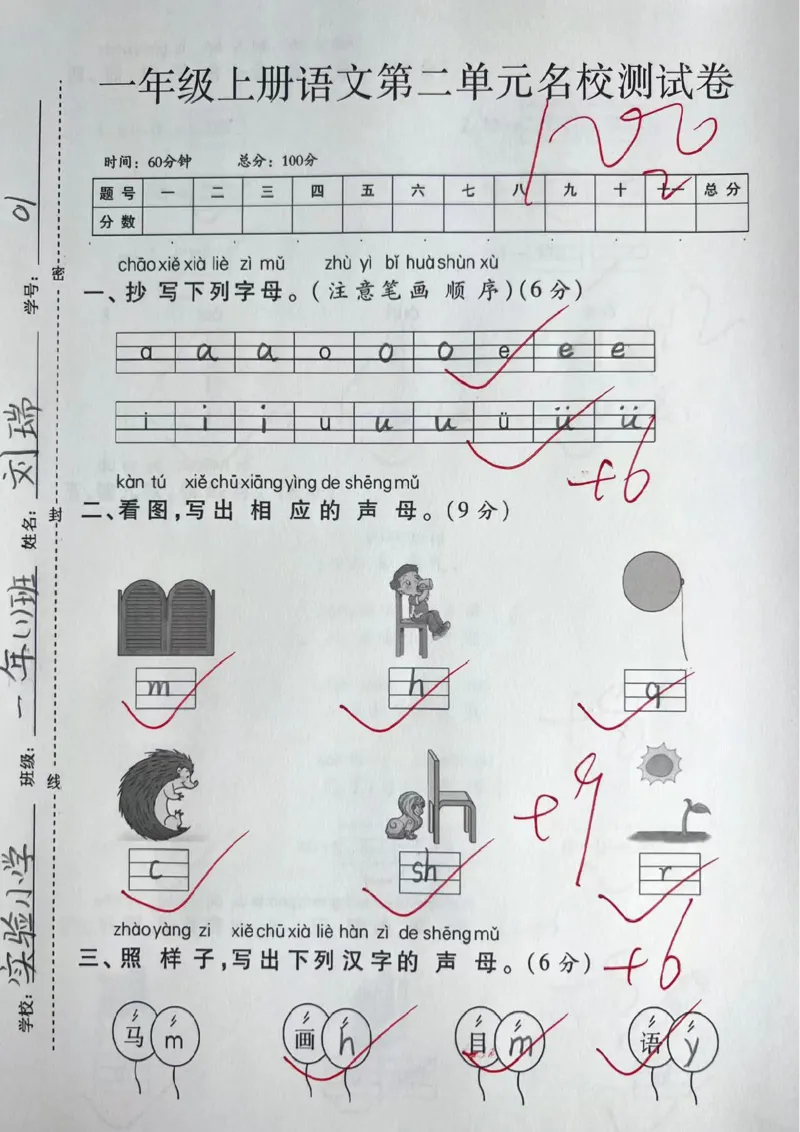 一年级上册语文第二单元名校测试卷
100
时间：60分钟 总分：100分
题号 一 二 三 四 五 六 七 八 九 十 十一 总分
分数
chāo xiě xià liè zì mǔ zhù yì bǐ huà shùn xù
一、抄写下列字母。(注意笔画顺序)(6分)
a a a o o o e e e
i i i u u u ü ü ü
+6
kàn tú xiě chū xiāng yìng de shēng mǔ
二、看图,写出相应的声母。(9分)
m h q
c sh r
+9
zhào yàng zi xiě chū xià liè hàn zì de shēng mǔ
三、照样子,写出下列汉字的声母。(6分)
+6
马 m 画 h 目 m 语 y
学校：实验小学 班级：一年(1)班 姓名：刘瑞 学号：01
密
封
线